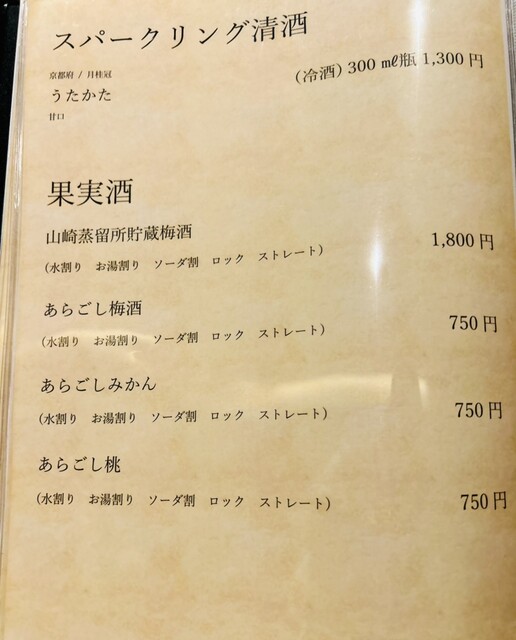 スパークリング清酒
京都府 / 月桂冠
うたかた
(冷酒) 300 ㎖瓶 1,300 円
甘口
果実酒
山崎蒸留所貯蔵梅酒
1,800 円
(水割り お湯割り ソーダ割 ロック ストレート)
あらごし梅酒
750 円
(水割り お湯割り ソーダ割 ロック ストレート)
あらごしみかん
750 円
(水割り お湯割り ソーダ割 ロック ストレート)
あらごし桃
750 円
(水割り お湯割り ソーダ割 ロック ストレート)